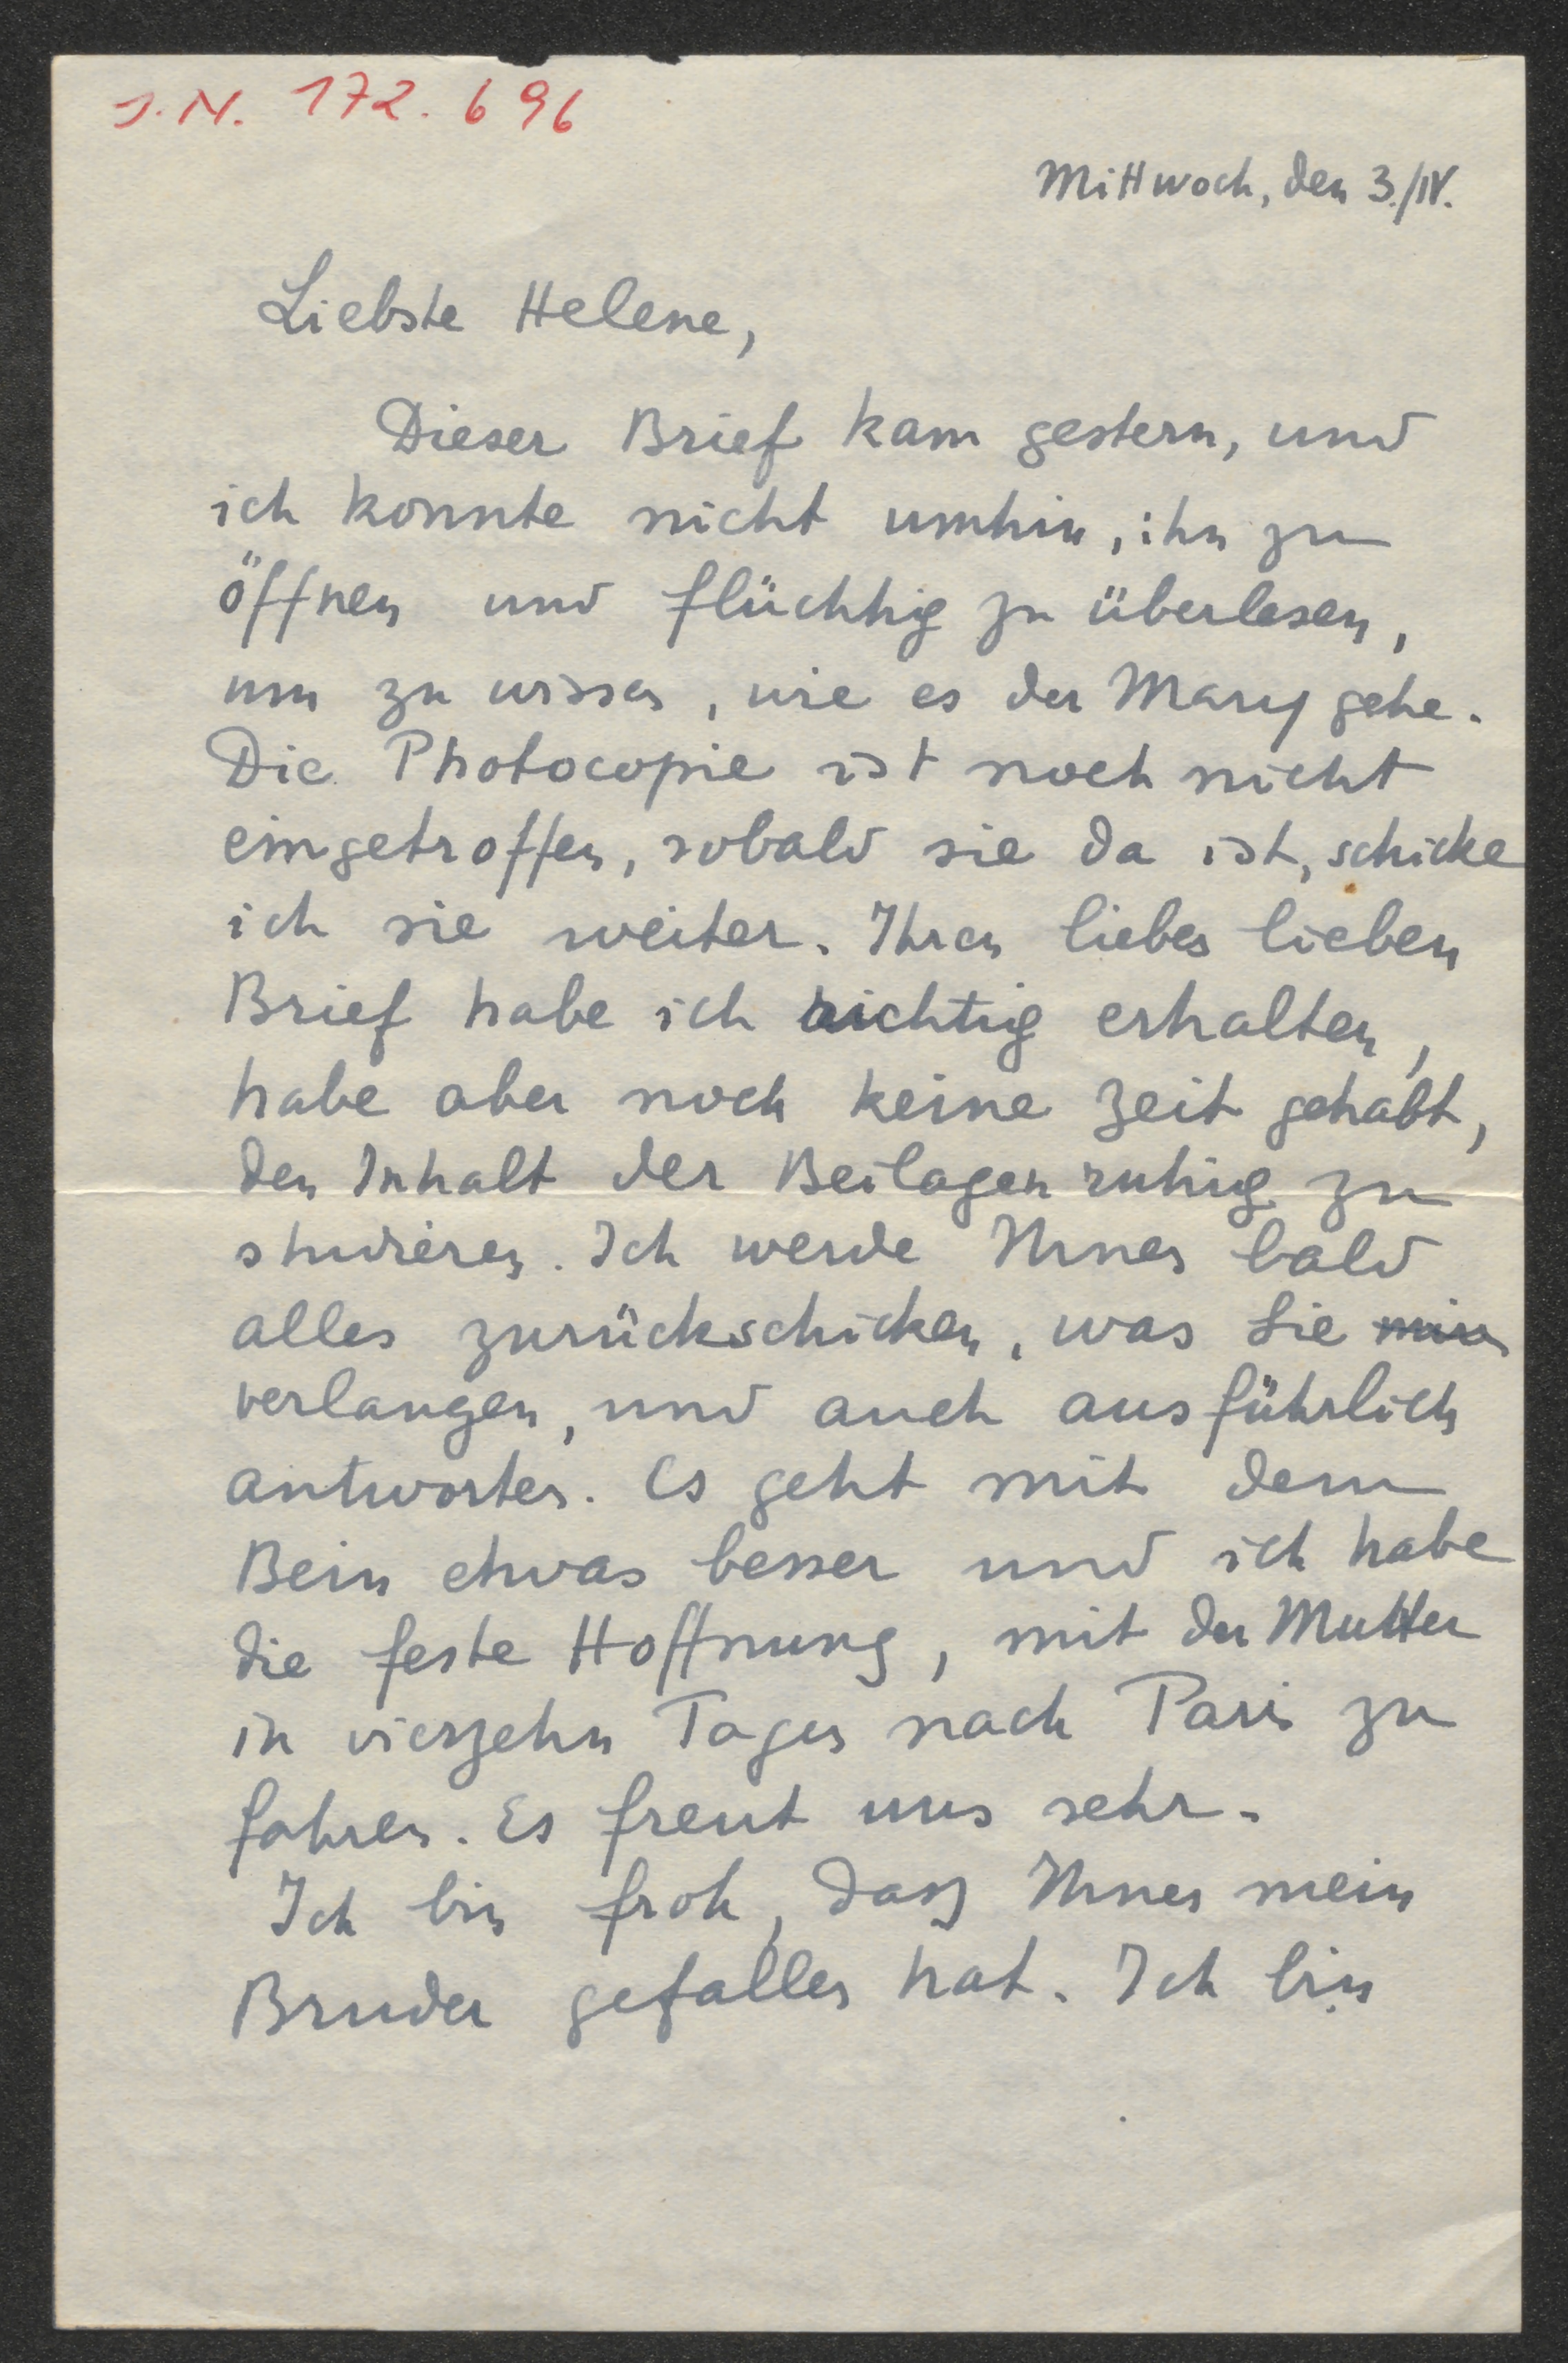 J.N. 172.696
Mittwoch, den 3./IV.
Liebste Helene,
Dieser Brief kam gestern, und
ich konnte nicht umhin, ihn zu
öffnen und flüchtig zu überlesen,
um zu wissen, wie es der Mary gehe.
Die Photocopie ist noch nicht
eingetroffen, sobald sie da ist, schicke
ich sie weiter. Ihren lieben lieben
Brief habe ich richtig erhalten,
habe aber noch keine Zeit gehabt,
den Inhalt der Beilagen ruhig zu
studieren. Ich werde Ihnen bald
alles zurückschicken, was Sie
verlangen, und auch ausführlich
antworten. Es geht mit dem
Bein etwas besser und ich habe
die feste Hoffnung, mit der Mutter
in vierzehn Tagen nach Paris zu
fahren. Es freut uns sehr.
Ich bin froh, dass Ihnen mein
Bruder gefallen hat. Ich bin